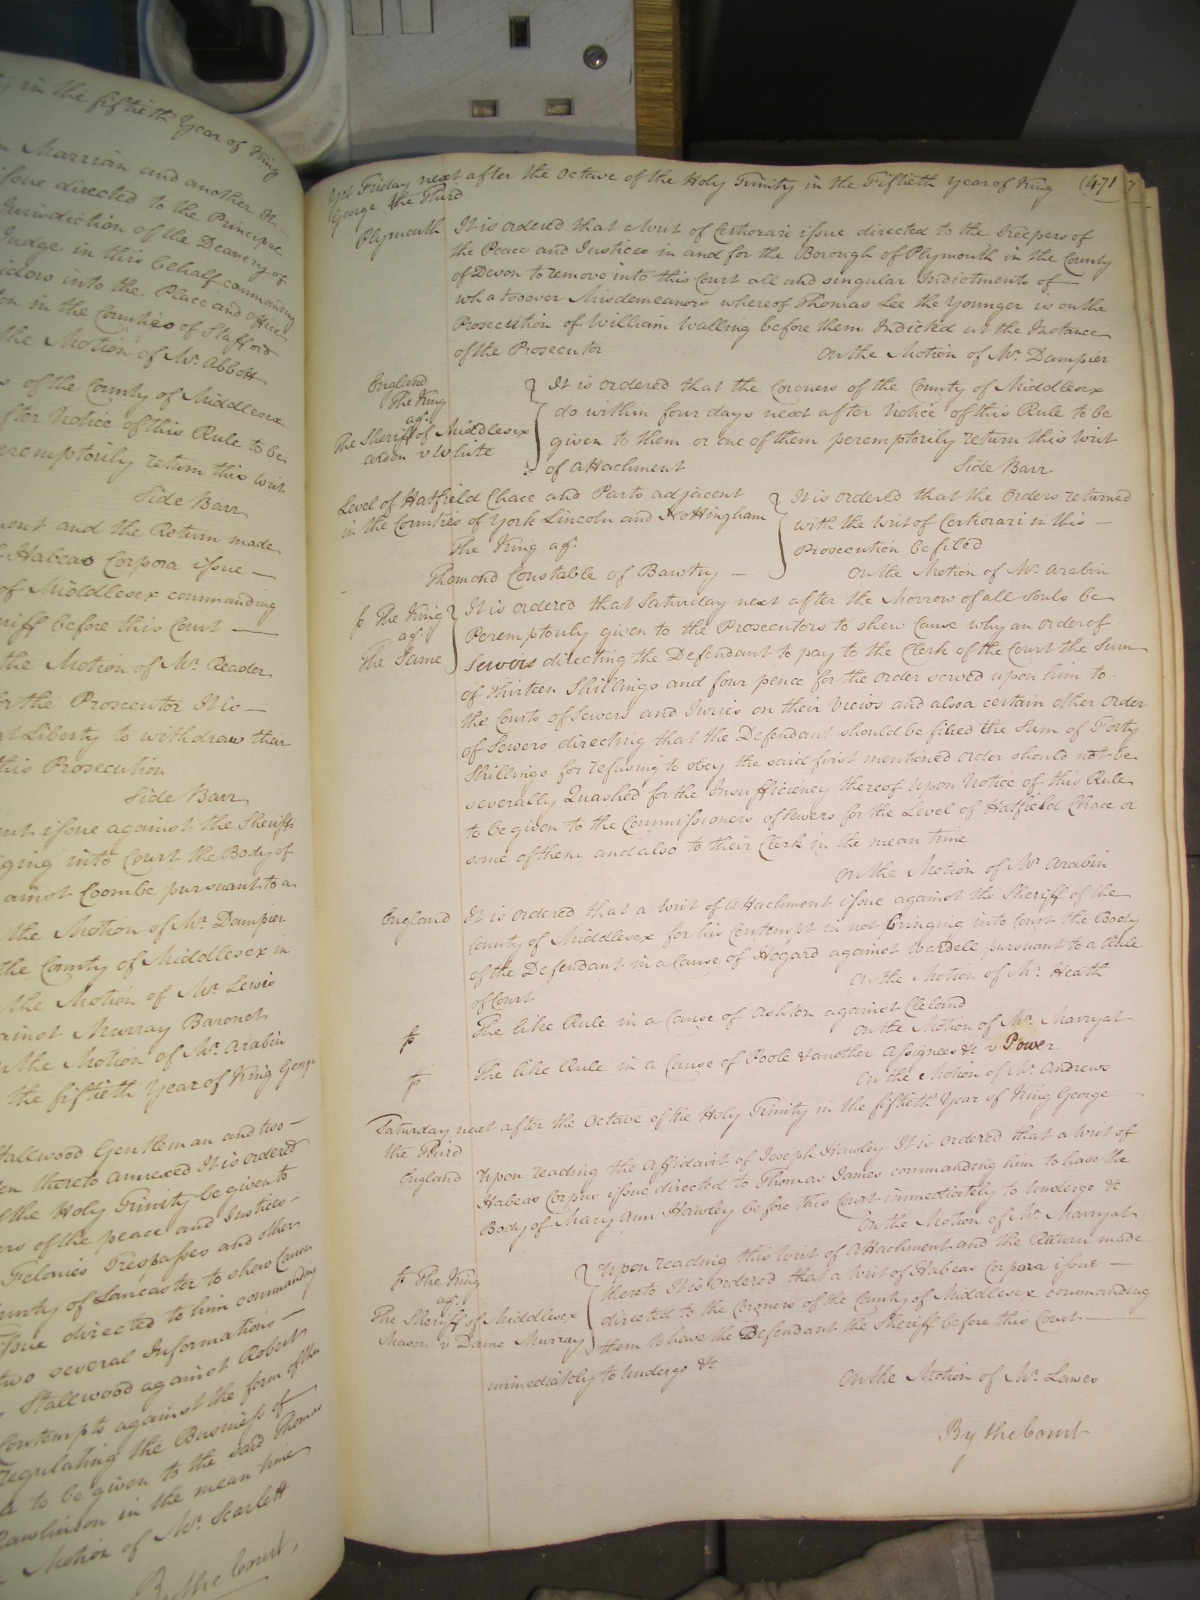 in the fiftieth Year of King
Marrian and another It
issue directed to the Principal
Jurisdiction of the Deanery of
Judge in this behalf commanding
into the Place and Office
in the Counties of Stafford
the Motion of Mr. Abbott
of the County of Middlesex
after Notice of this Rule to be
peremptorily return this writ
Side Barr
and the Return made
Habeas Corpora issue
of Middlesex commanding
before this Court
the Motion of Mr. Reader
for the Prosecutor It is
at Liberty to withdraw their
this Prosecution
Side Barr
issue against the Sheriff
into Court the Body of
against Coombe pursuant to a
the Motion of Mr. Dampier
the County of Middlesex in
the Motion of Mr. Lewis
against Murray Baronet
the Motion of Mr. Arabin
the fiftieth Year of King George
Stallwood Gentleman and two
thereto annexed It is ordered
the Holy Trinity be given to
of the peace and Justices
Felonies Trespasses and other
County of Lancaster to shew Cause
issue directed to him commanding
two several Informations
Stallwood against Robert
Contempts against the form of the
regulating the Business of
to be given to the said Thomas
Rawlinson in the mean time
Motion of Mr. Scarlett
By the Court,
Yet Friday next after the Octave of the Holy Trinity in the Fiftieth Year of King (471
George the Third
Plymouth It is ordered that a writ of Certiorari issue directed to the Keepers of
the Peace and Justices in and for the Borough of Plymouth in the County
of Devon to remove into this Court all and singular Indictments of
whatsoever Misdemeanors whereof Thomas Lee the Younger is on the
Prosecution of William Walling before them Indicted at the Instance
of the Prosecutor On the Motion of Mr. Dampier
England
The King
agt.
The Sheriff of Middlesex
Ardon v White
It is ordered that the Coroners of the County of Middlesex
do within four days next after Notice of this Rule to be
given to them or one of them peremptorily return this Writ
of Attachment Side Barr
Level of Hatfield Chace and Parts adjacent
in the Counties of York Lincoln and Nottingham
The King agt.
Thomond Constable of Bawtry
It is ordered that the Orders returned
with the Writ of Certiorari in this
Prosecution be filed
On the Motion of Mr. Arabin
The King
agt.
The Same
It is ordered that Saturday next after the Morrow of all Souls be
Peremptorily given to the Prosecutors to shew Cause why an order of
Sewers directing the Defendant to pay to the Clerk of the Court the Sum
of Thirteen Shillings and four pence for the order served upon him to
the Courts of Sewers and Juries on their Views and also a certain other Order
of Sewers directing that the Defendant should be fined the Sum of Forty
Shillings for refusing to obey the said first mentioned order should not be
severally Quashed for the Insufficiency thereof Upon Notice of this Rule
to be given to the Commissioners of Sewers for the Level of Hatfield Chace or
some of them and also to their Clerk in the mean time
On the Motion of Mr. Arabin
England It is Ordered that a Writ of Attachment issue against the Sheriff of the
County of Middlesex for his Contempt in not bringing into Court the Body
of the Defendant in a Cause of Hogard against Wardell pursuant to a Rule
of Court On the Motion of Mr. Heath
The like Rule in a Cause of Ashton against Cleland
On the Motion of Mr. Marryat
The like Rule in a Cause of Poole & another Assignees &c v Power
On the Motion of Mr. Andrews
Saturday next after the Octave of the Holy Trinity in the fiftieth Year of King George
the Third
England Upon reading the Affidavit of Joseph Hawley It is ordered that a Writ of
Habeas Corpus issue directed to Thomas James commanding him to have the
Body of Mary Ann Hawley before this Court immediately to undergo &c
On the Motion of Mr. Marryat
The King
agt.
The Sheriff of Middlesex
Mason v Dame Murray
Upon reading this Writ of Attachment and the Return made
thereto It is Ordered that a Writ of Habeas Corpora issue
directed to the Coroners of the County of Middlesex commanding
them to have the Defendant the Sheriff before this Court
immediately to undergo &c
On the Motion of Mr. Lawes
By the Court